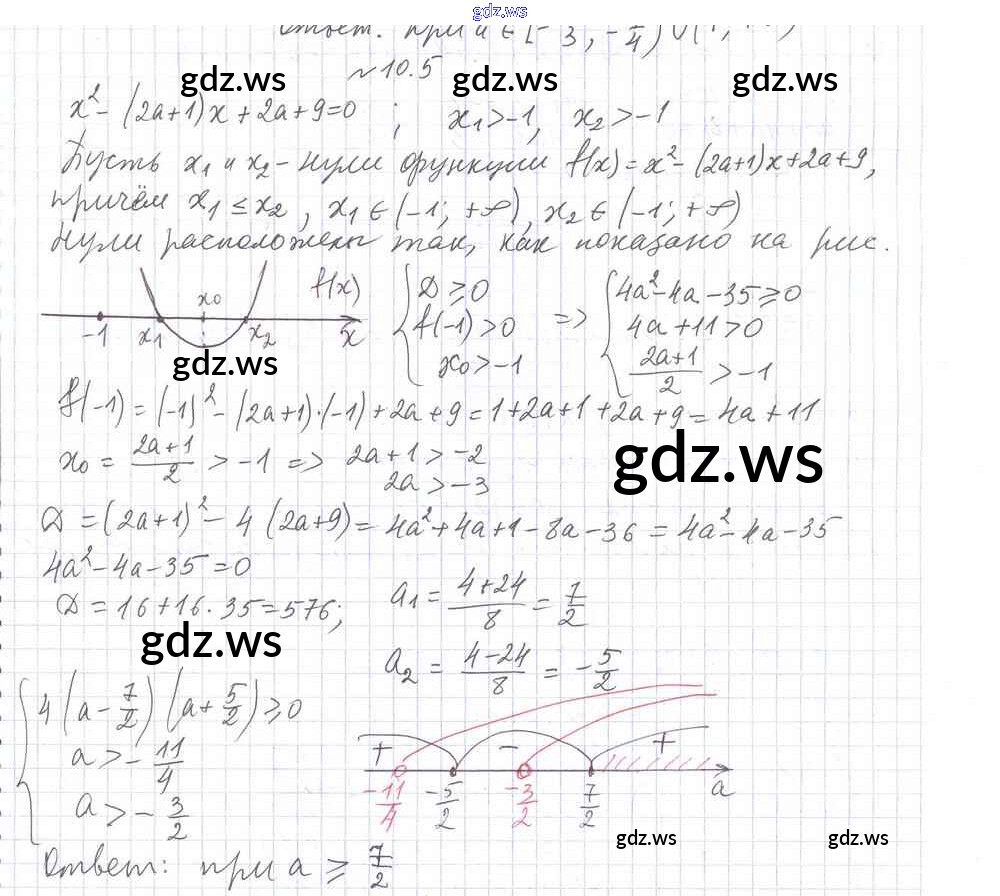 gdz.ws
Ответ: при a ∈ [- 3, -
4) ∪ (
№10.5
gdz.ws gdz.ws gdz.ws
x² - (2a+1)x + 2a + 9 = 0 ; x₁ > -1, x₂ > -1
Пусть x₁ и x₂ - нули функции f(x) = x² - (2a+1)x + 2a + 9,
причём x₁ ≤ x₂, x₁ ∈ (-1; +∞), x₂ ∈ (-1; +∞)
Нули расположены так, как показано на рис.
-1 x₁ x₀ x₂ f(x) x
{ D ≥ 0
f(-1) > 0
x₀ > -1
=>
{ 4a² - 4a - 35 ≥ 0
4a + 11 > 0
(2a+1)/2 > -1
gdz.ws
f(-1) = (-1)² - (2a+1)·(-1) + 2a + 9 = 1 + 2a + 1 + 2a + 9 = 4a + 11
x₀ = (2a+1)/2 > -1 => 2a + 1 > -2
2a > -3
gdz.ws
D = (2a+1)² - 4(2a+9) = 4a² + 4a + 1 - 8a - 36 = 4a² - 4a - 35
4a² - 4a - 35 = 0
D = 16 + 16·35 = 576; a₁ = (4+24)/8 = 7/2
gdz.ws
a₂ = (4-24)/8 = -5/2
{ 4(a - 7/2)(a + 5/2) ≥ 0
a > -11/4
a > -3/2
+ - +
-11/4 -5/2 -3/2 7/2 a
gdz.ws gdz.ws
Ответ: при a ≥ 7/2